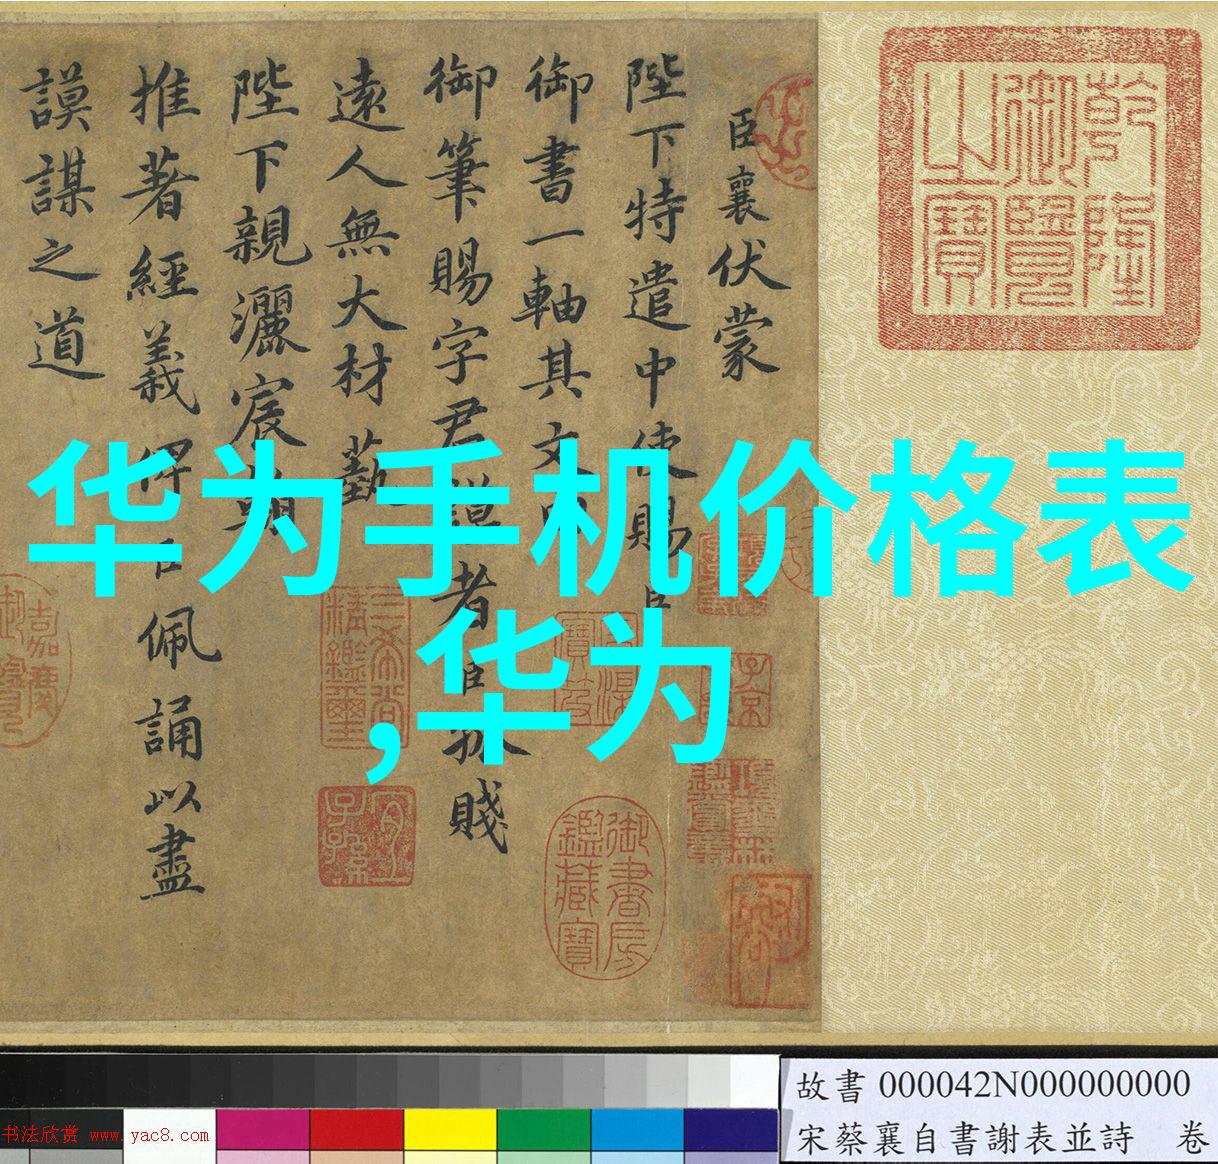 華为手机价格表
,华为
臣襄伏蒙
陛下特遣中使賜臣
御書一軸其文曰
御筆賜字君謨者臣孤賤
遠人無大材
陛下親灑宸
推著經義俾臣佩誦以盡
謨謀之道
乾隆御覽之寶
三希堂精鑑璽
宜子孫
御書房鑑藏寶
故書 000042N000000000
宋蔡襄自書謝表並詩 卷
书法欣赏 www.yac8.com